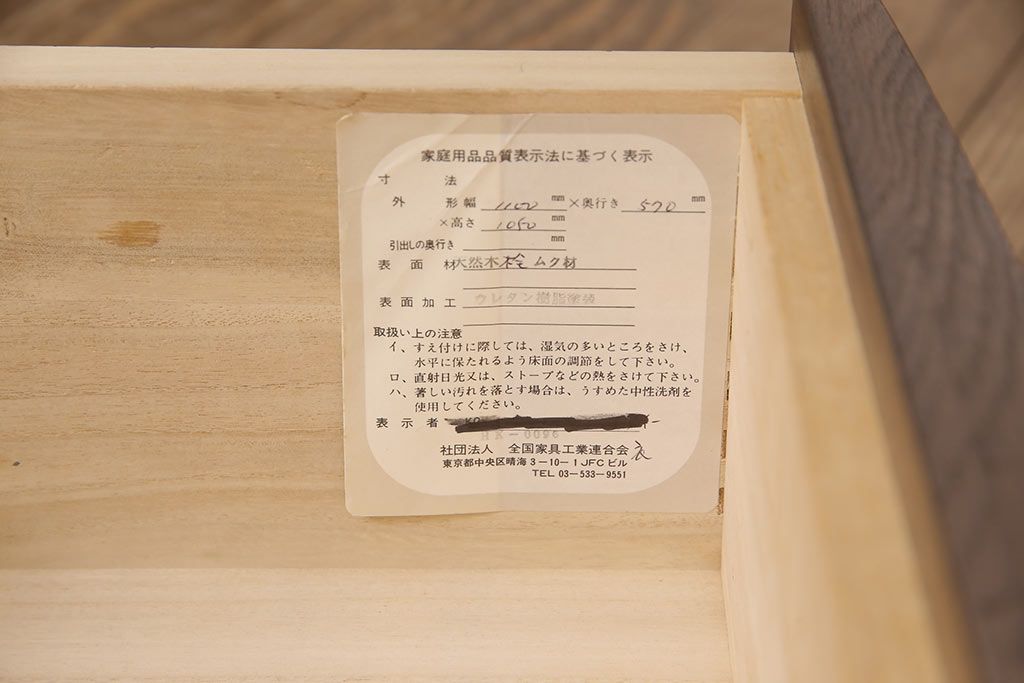 家庭用品品質表示法に基づく表示
寸 法
外 形 幅 1100 mm ×奥行き 570 mm
×高さ 1050 mm
引出しの奥行き mm
表 面 材 天然木桧ムク材
表 面 加 工 ウレタン樹脂塗装
取扱い上の注意
イ、すえ付けに際しては、湿気の多いところをさけ、
水平に保たれるよう床面の調節をして下さい。
ロ、直射日光又は、ストーブなどの熱をさけて下さい。
ハ、著しい汚れを落とす場合は、うすめた中性洗剤を
使用してください。
表 示 者
HK-0096
社団法人 全国家具工業連合会
東京都中央区晴海3-10-1JFCビル
TEL 03-533-9551